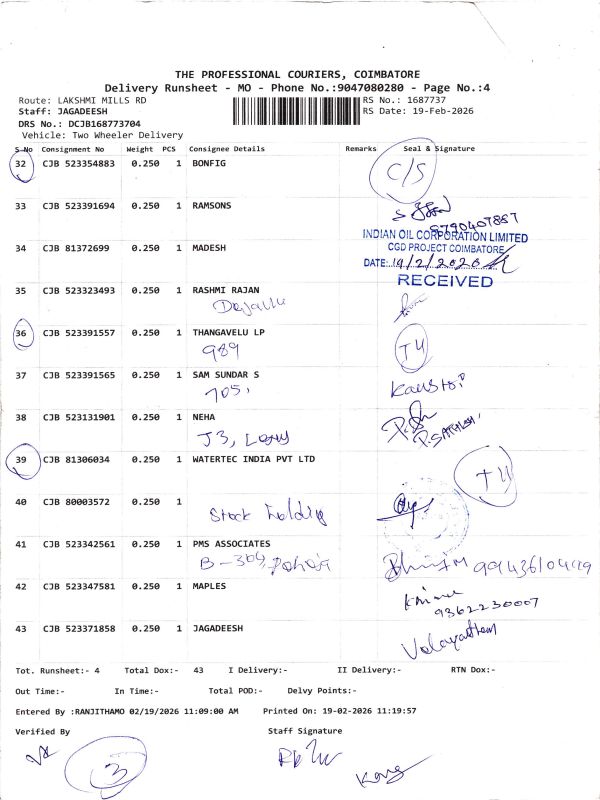 THE PROFESSIONAL COURIERS, COIMBATORE
Delivery Runsheet - MO - Phone No.:9047080280 - Page No.:4
Route: LAKSHMI MILLS RD RS No.: 1687737
Staff: JAGADEESH RS Date: 19-Feb-2026
DRS No.: DCJB168773704
Vehicle: Two Wheeler Delivery
S No Consignment No Weight PCS Consignee Details Remarks Seal & Signature
32 CJB 523354883 0.250 1 BONFIG C/S
33 CJB 523391694 0.250 1 RAMSONS
8790407867
INDIAN OIL CORPORATION LIMITED
34 CJB 81372699 0.250 1 MADESH CGD PROJECT COIMBATORE
DATE: 19/2/2026
RECEIVED
35 CJB 523323493 0.250 1 RASHMI RAJAN
36 CJB 523391557 0.250 1 THANGAVELU LP
989 T4
37 CJB 523391565 0.250 1 SAM SUNDAR S
705,
38 CJB 523131901 0.250 1 NEHA
J3, P. SATHISH,
39 CJB 81306034 0.250 1 WATERTEC INDIA PVT LTD T4
40 CJB 80003572 0.250 1
Stock holding
41 CJB 523342561 0.250 1 PMS ASSOCIATES
B-304,
42 CJB 523347581 0.250 1 MAPLES
9362230007
43 CJB 523371858 0.250 1 JAGADEESH
Tot. Runsheet:- 4 Total Dox:- 43 I Delivery:- II Delivery:- RTN Dox:-
Out Time:- In Time:- Total POD:- Delvy Points:-
Entered By :RANJITHAMO 02/19/2026 11:09:00 AM Printed On: 19-02-2026 11:19:57
Verified By Staff Signature
3